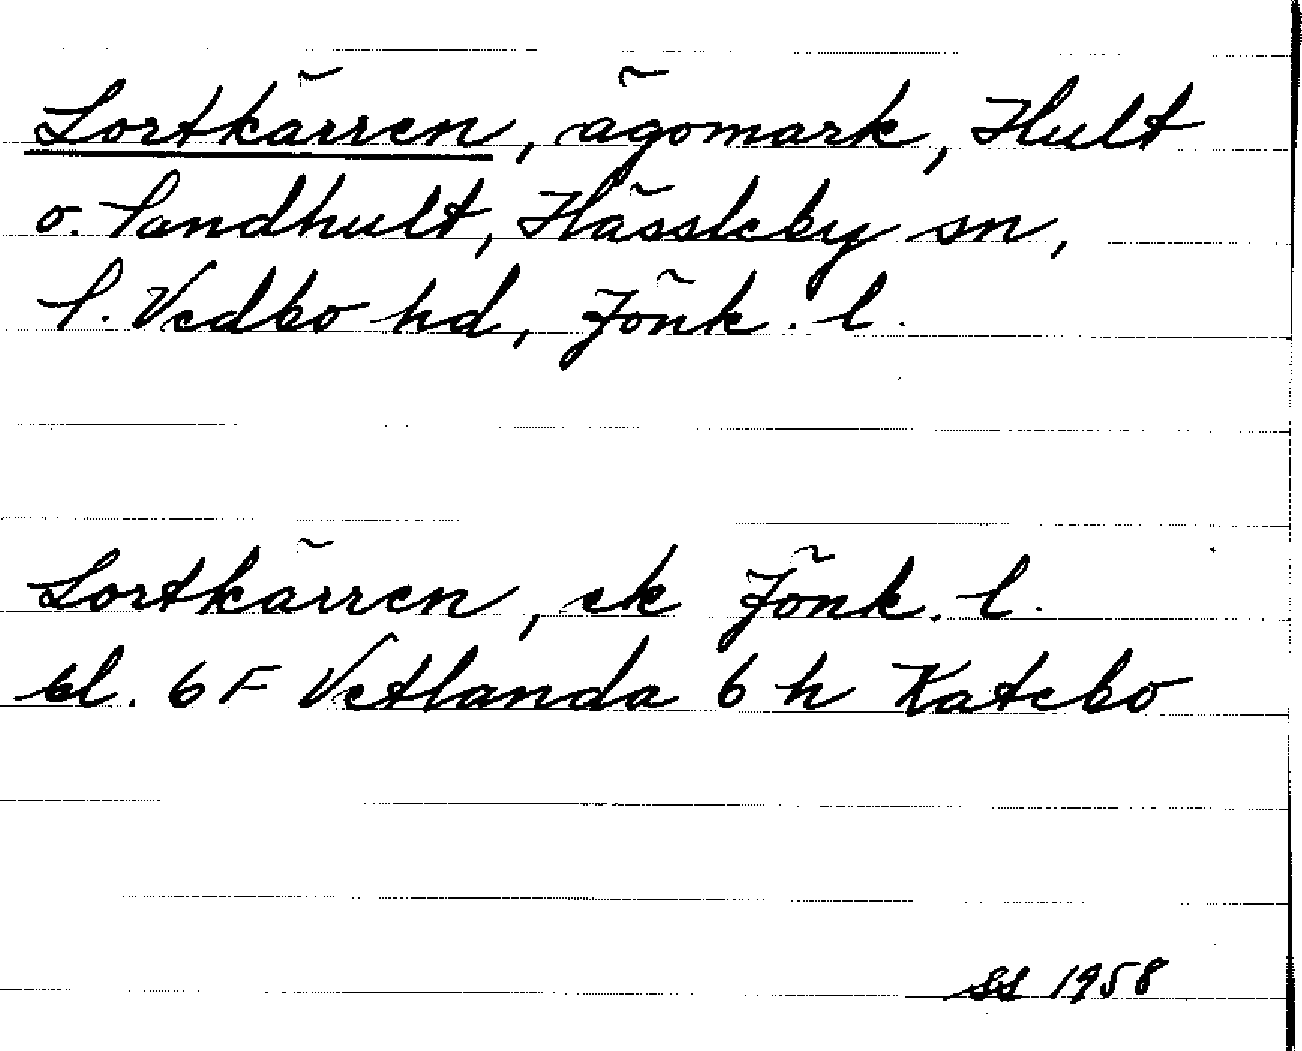 Lortkärren, ägomark, Hult
o. Sandhult, Hässleby sn,
S. Vedbo hd, Jönk. l.
Lortkärren, ek Jönk. l.
bl. 6 F Vetlanda 6 h Katebo
SS 1958